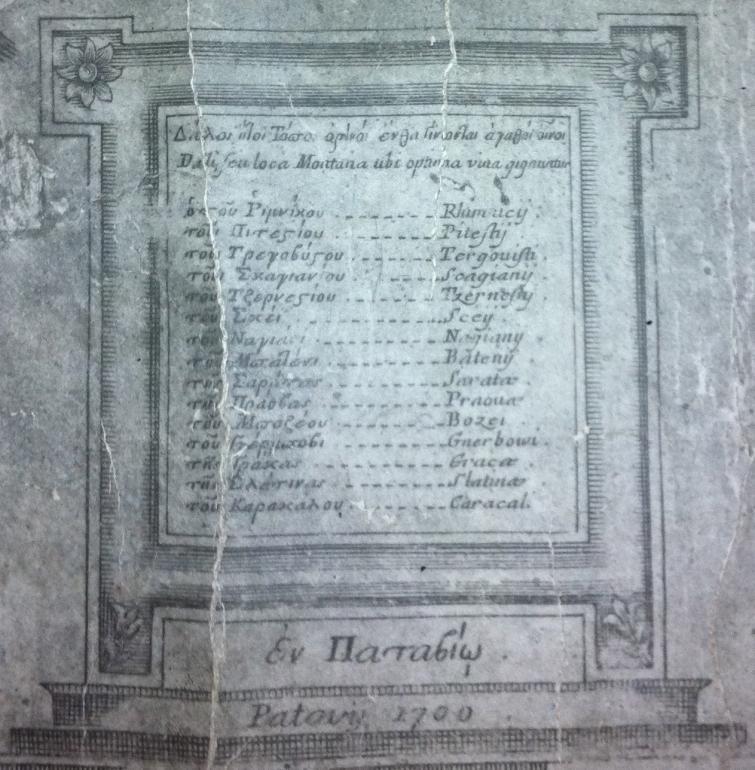 Δάλοι ἤτοι Τόποι ὀρινοὶ ἔνθα γίνονται ἀγαθοὶ οἶνοι
Dali, seu loca Montana ubi optima vina gignuntur
ὁ τοῦ Ριμνίκου . - - - - - - - Rhimnicij .
τοῦ Πιτεςίου . - - - - - - - Piteshij .
τοῦ Τρεγοβύςου - - - - - - - Tergouisti .
τοῦ Σκαγιανίου . - - - - - - - Scagiany .
τοῦ Τζερνεςίου . - - - - - - - Tzerneshij .
τοῦ Σκέϊ . - - - - - - - Sceij .
τοῦ - - - - - - - Nagiany .
τοῦ - - - - - - - Bâtenij .
τῆς Σαράτας - - - - - - - Saratæ .
τῆς Πράοβας - - - - - - - Praouæ .
τοῦ Μποζέου - - - - - - - Bozei .
τοῦ - - - - - - - Gherbowi .
τῆς Γράκας - - - - - - - Gracæ .
τῆς Σλάτινας - - - - - - - Slatinæ .
τοῦ Καρακάλου . - - - - - - - Caracal .
ἐν Παταβίῳ .
Patavij 1700